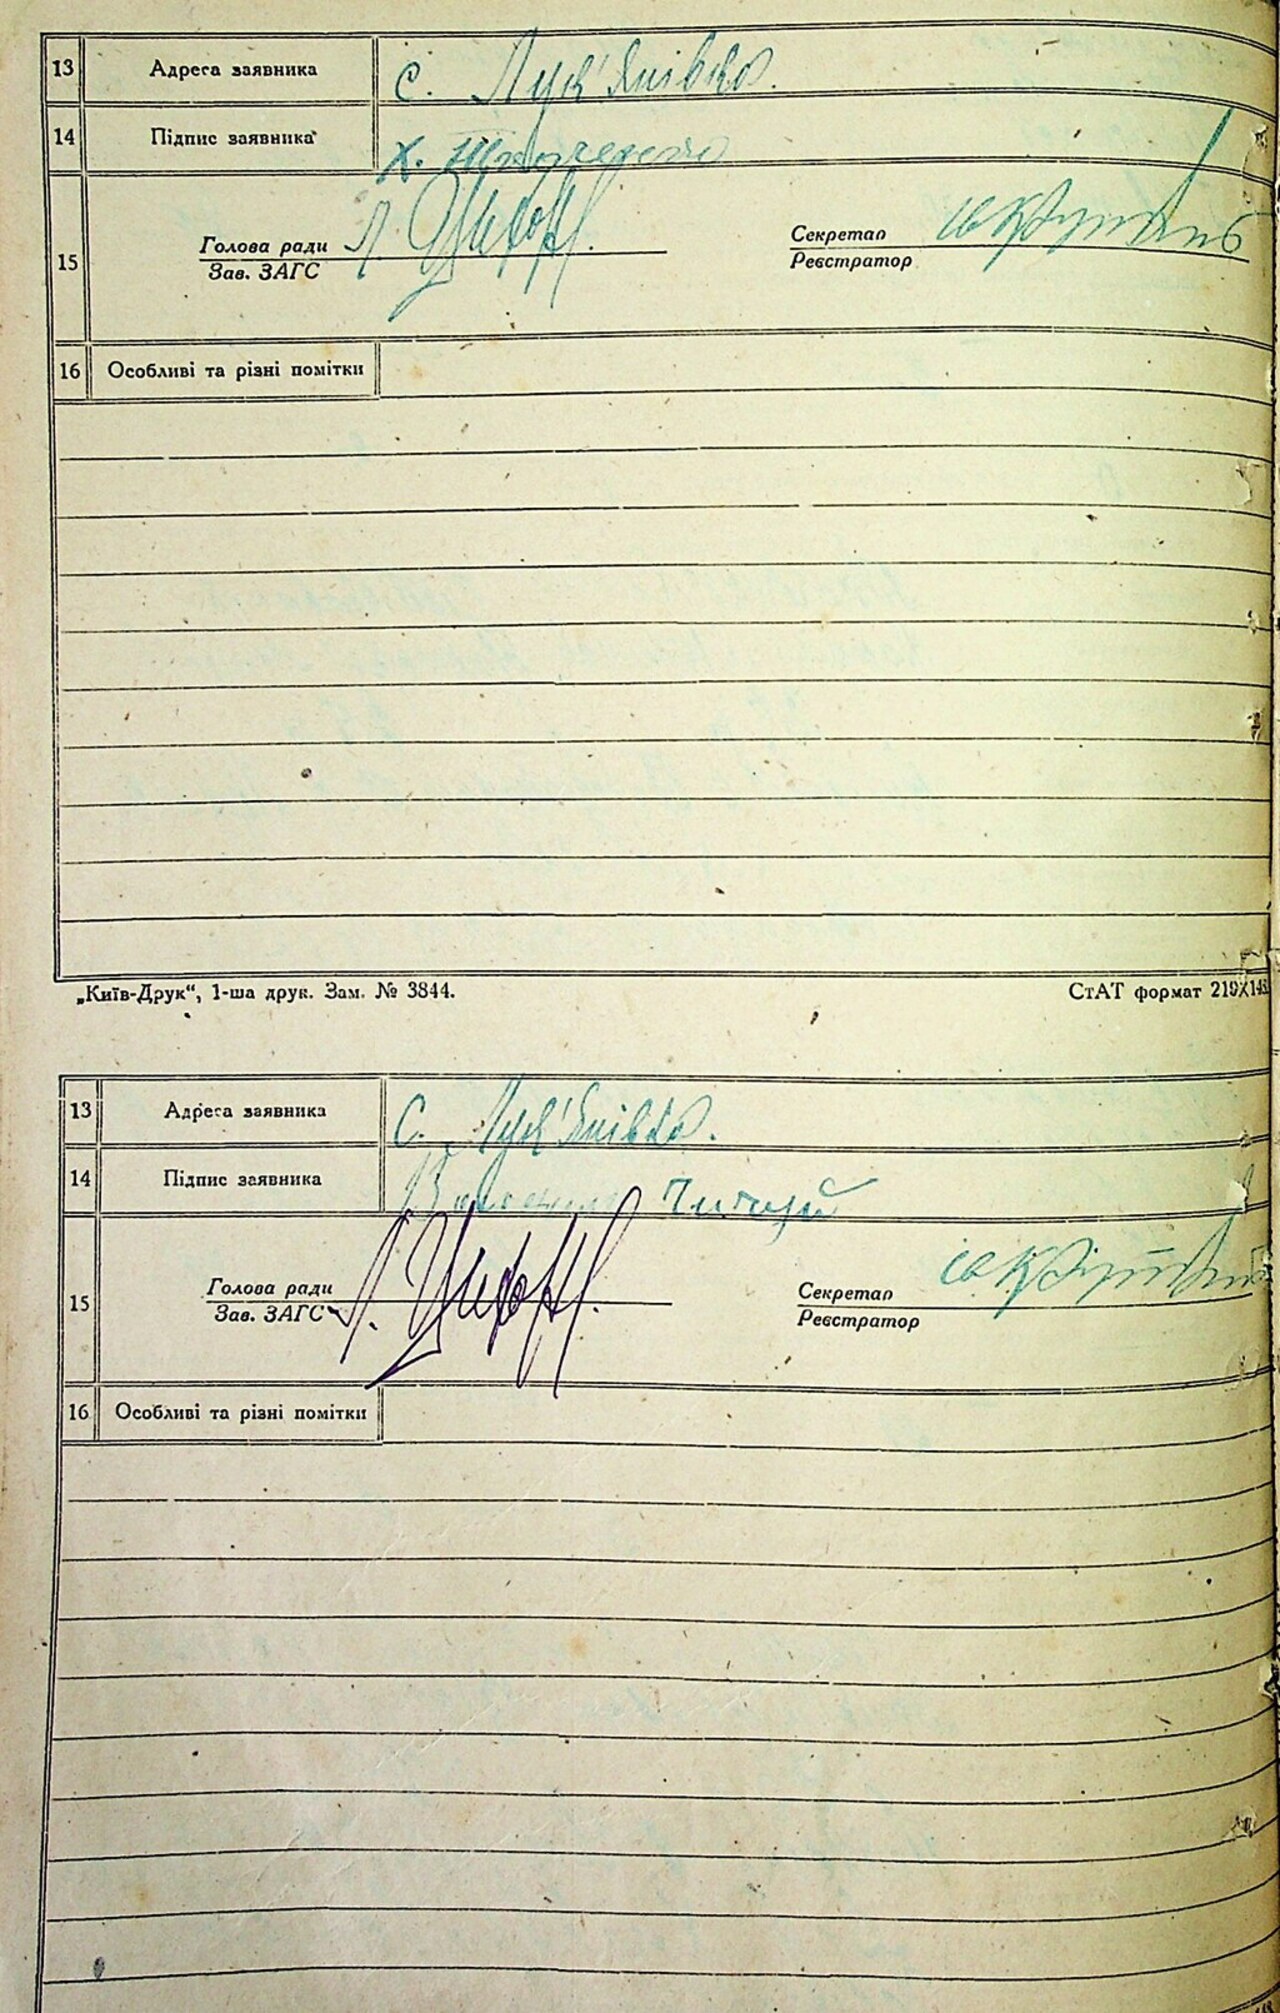 13 Адреса заявника с. Лук'янівка.
14 Підпис заявника Х.
15 Голова ради Секретар
Зав. ЗАГС Реєстратор
16 Особливі та різні помітки
„Київ-Друк“, 1-ша друк. Зам. № 3844. СтАТ формат 210X148
13 Адреса заявника с. Лук'янівка.
14 Підпис заявника
15 Голова ради Секретар
Зав. ЗАГС Реєстратор
16 Особливі та різні помітки